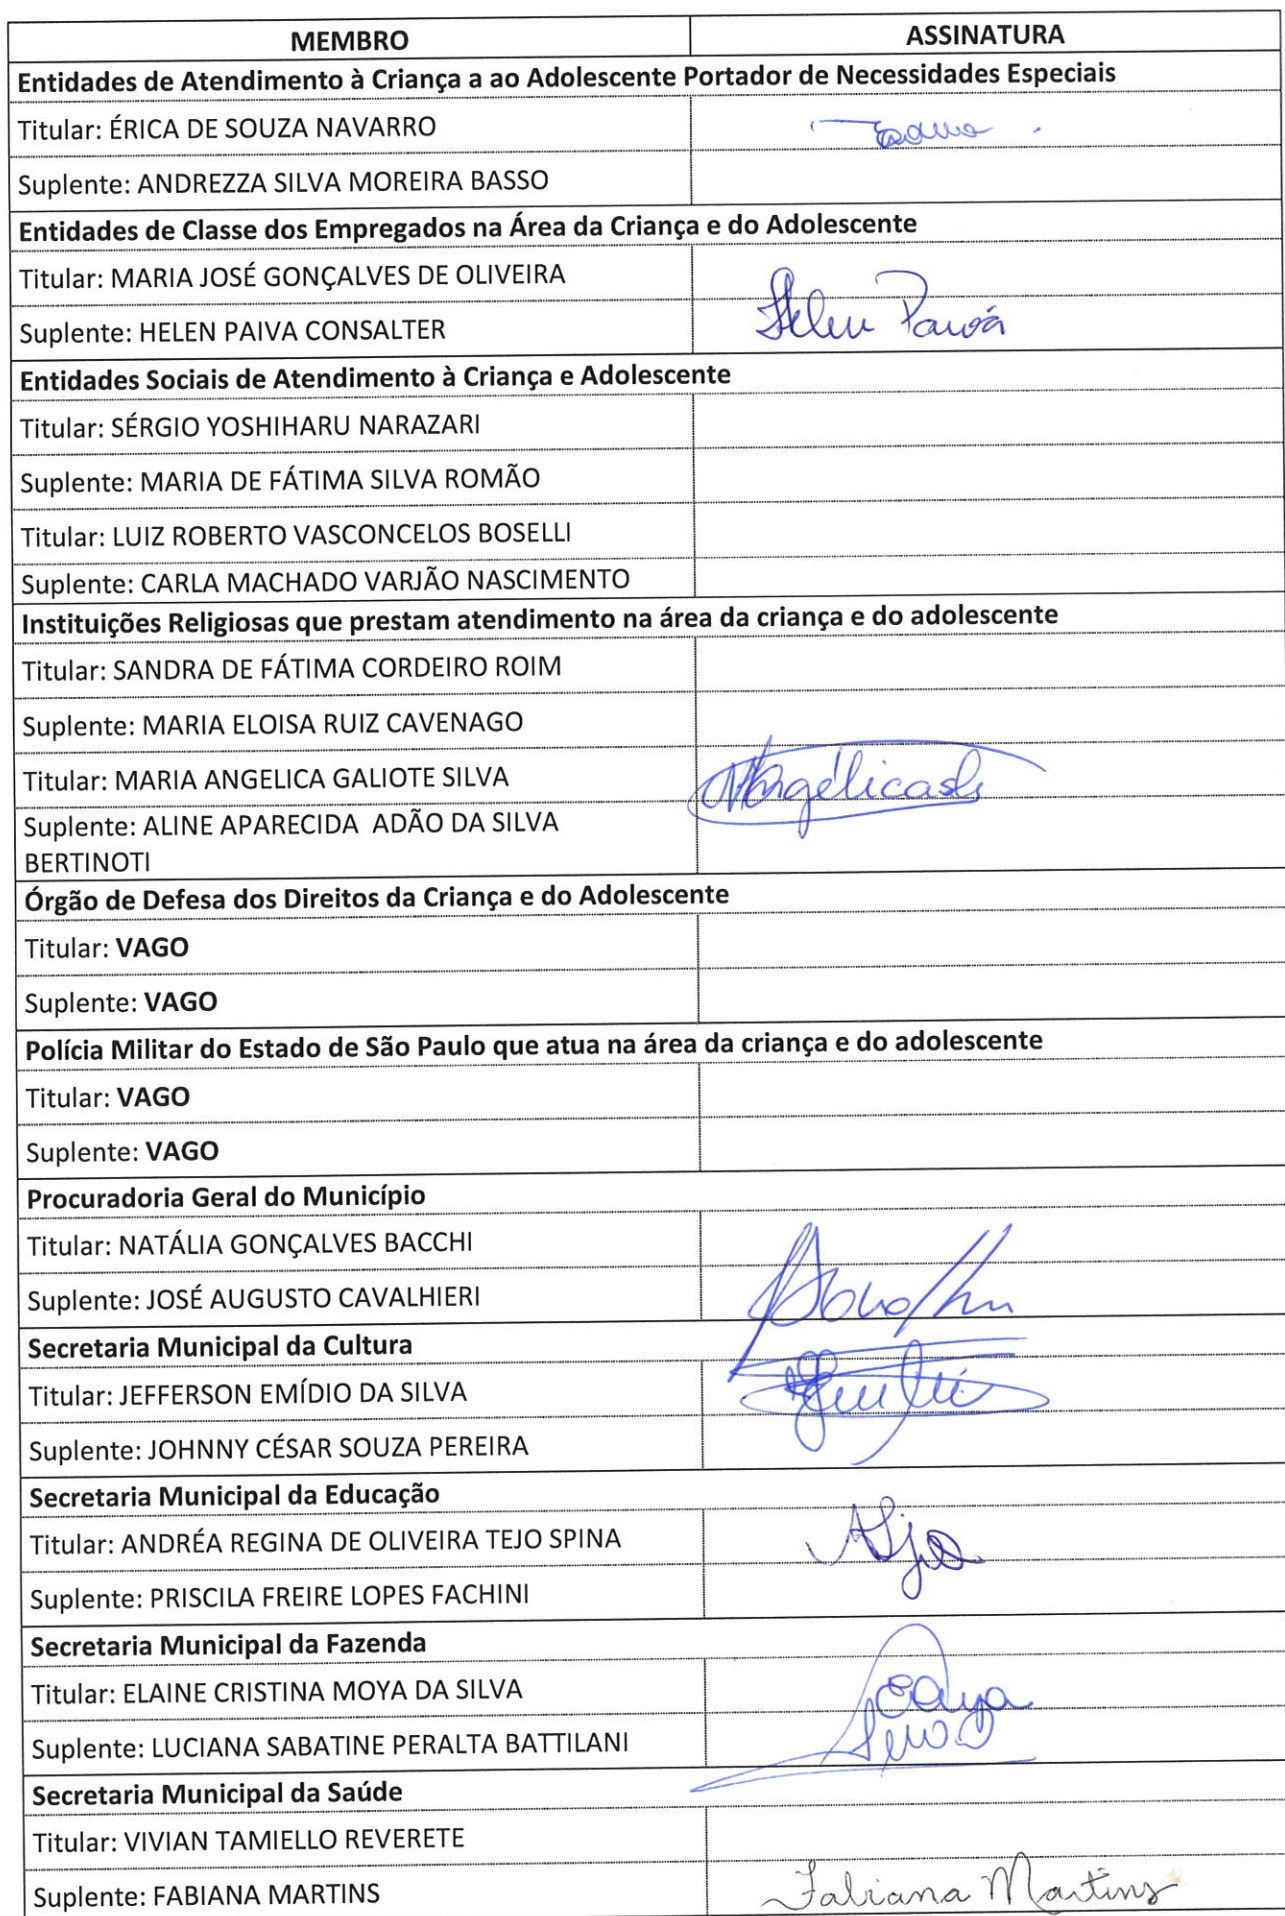 MEMBRO ASSINATURA
Entidades de Atendimento à Criança a ao Adolescente Portador de Necessidades Especiais
Titular: ÉRICA DE SOUZA NAVARRO
Suplente: ANDREZZA SILVA MOREIRA BASSO
Entidades de Classe dos Empregados na Área da Criança e do Adolescente
Titular: MARIA JOSÉ GONÇALVES DE OLIVEIRA
Suplente: HELEN PAIVA CONSALTER Helen Paiva
Entidades Sociais de Atendimento à Criança e Adolescente
Titular: SÉRGIO YOSHIHARU NARAZARI
Suplente: MARIA DE FÁTIMA SILVA ROMÃO
Titular: LUIZ ROBERTO VASCONCELOS BOSELLI
Suplente: CARLA MACHADO VARJÃO NASCIMENTO
Instituições Religiosas que prestam atendimento na área da criança e do adolescente
Titular: SANDRA DE FÁTIMA CORDEIRO ROIM
Suplente: MARIA ELOISA RUIZ CAVENAGO
Titular: MARIA ANGELICA GALIOTE SILVA
Suplente: ALINE APARECIDA ADÃO DA SILVA
BERTINOTI
Órgão de Defesa dos Direitos da Criança e do Adolescente
Titular: VAGO
Suplente: VAGO
Polícia Militar do Estado de São Paulo que atua na área da criança e do adolescente
Titular: VAGO
Suplente: VAGO
Procuradoria Geral do Município
Titular: NATÁLIA GONÇALVES BACCHI
Suplente: JOSÉ AUGUSTO CAVALHIERI
Secretaria Municipal da Cultura
Titular: JEFFERSON EMÍDIO DA SILVA
Suplente: JOHNNY CÉSAR SOUZA PEREIRA
Secretaria Municipal da Educação
Titular: ANDRÉA REGINA DE OLIVEIRA TEJO SPINA
Suplente: PRISCILA FREIRE LOPES FACHINI
Secretaria Municipal da Fazenda
Titular: ELAINE CRISTINA MOYA DA SILVA
Suplente: LUCIANA SABATINE PERALTA BATTILANI
Secretaria Municipal da Saúde
Titular: VIVIAN TAMIELLO REVERETE
Suplente: FABIANA MARTINS Fabiana Martins